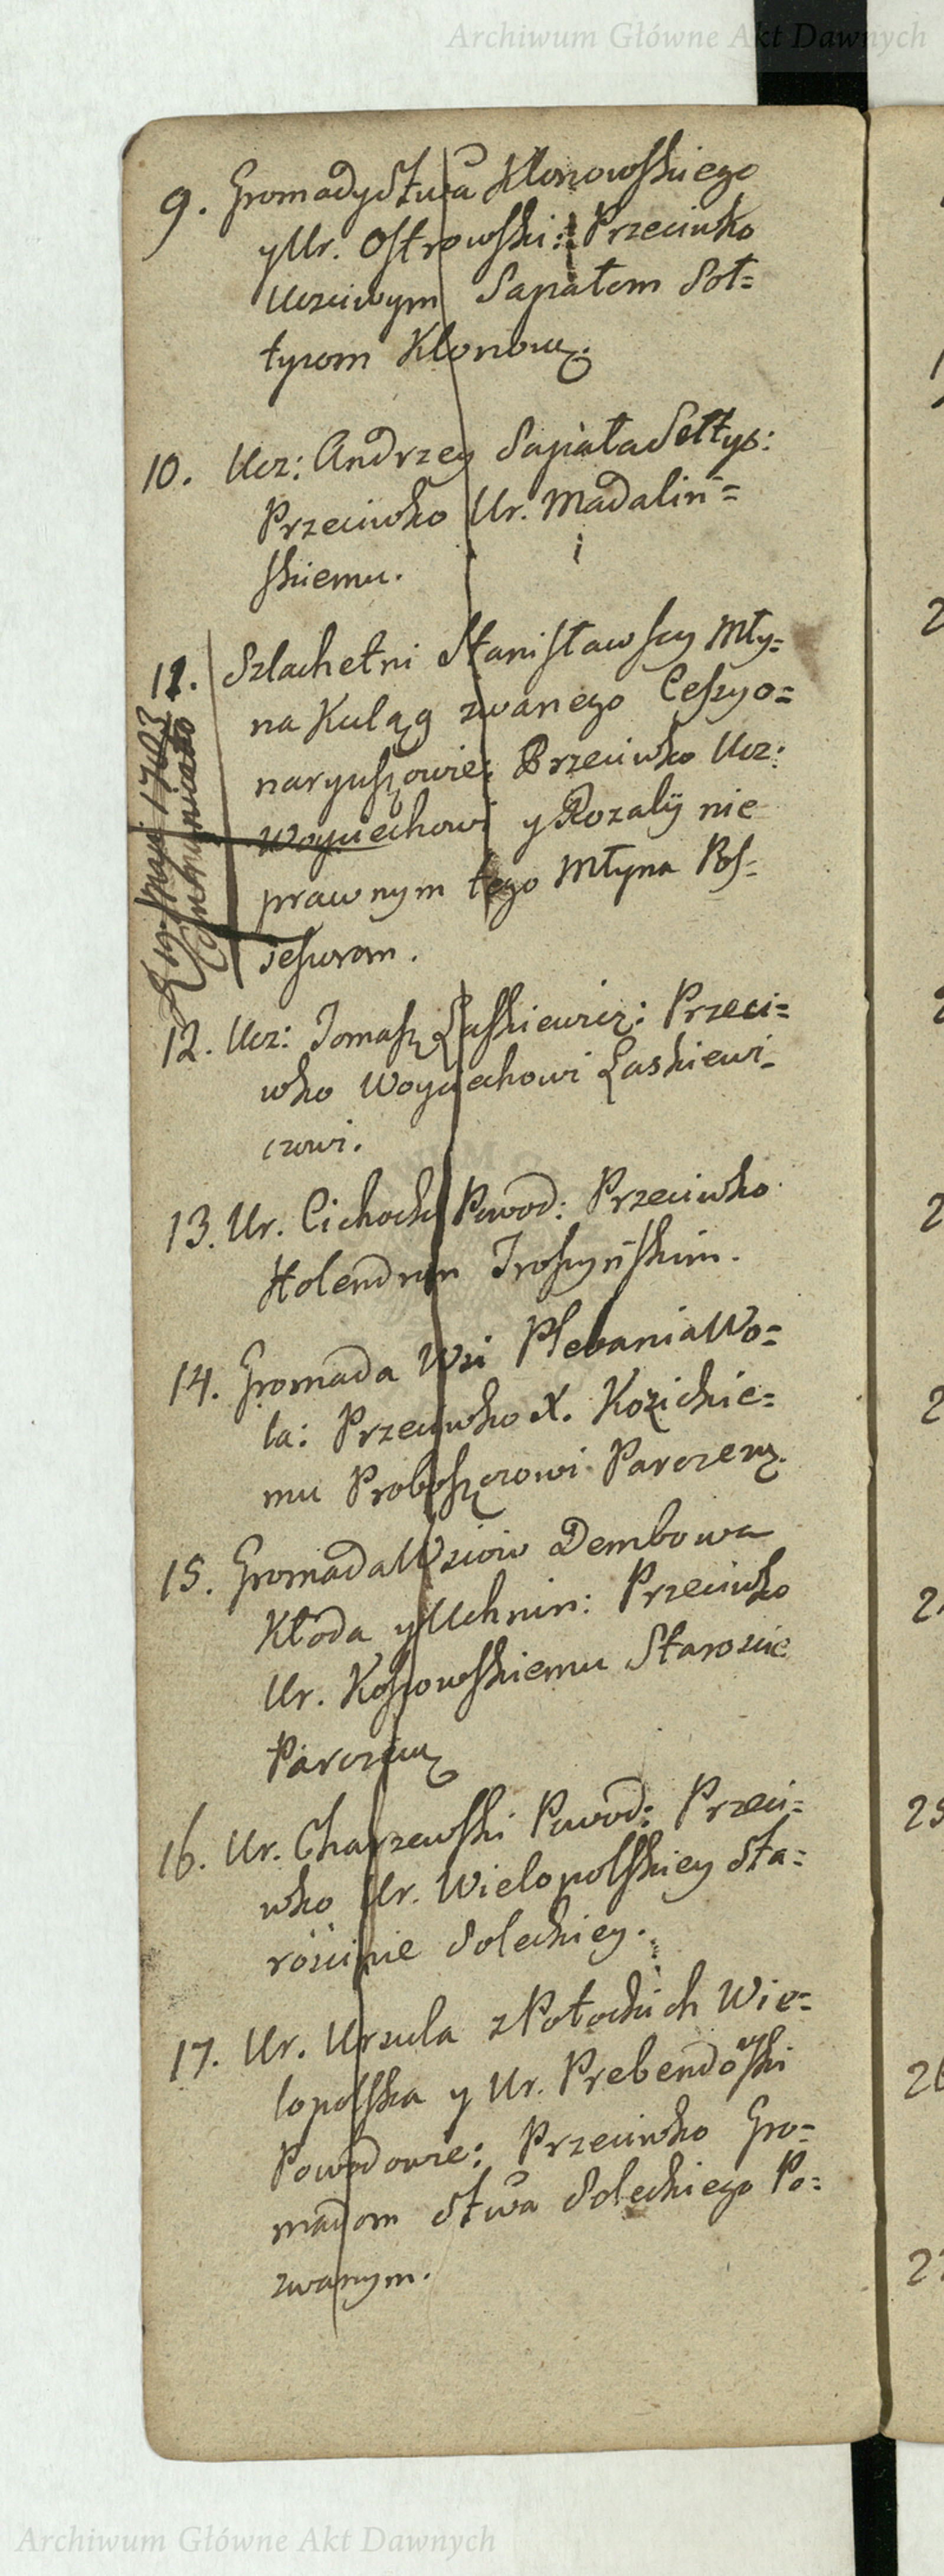 Archiwum Główne Akt Dawnych
9. Gromady Stwa Klonowskiego
y Ur. Ostrowski: Przeciwko
Uczciwym Sapiałom Soł=
tysom Klonow:
10. Ucz: Andrzey Sapiała Sołtys:
Przeciwko Ur. Madaliń=
skiemu.
11. Szlachetni Stanisławscy Mły=
na Kuląg zwanego Cessyo=
naryuszowie: Przeciwko Ucz:
Woyciechowi y Rozalij nie
prawnym tego Młyna Pos=
sessorom.
12. Ucz: Tomasz Laskiewicz: Przeci=
wko Woyciechowi Laskiewi=
czowi.
13. Ur. Cichocki Powod: Przeciwko
Holendrom Troszyńskim.
14. Gromada Wsi Plebania Wo=
la: Przeciwko X. Kozickie=
mu Proboszczowi Parczew:
15. Gromada Wsiow Dembowa
Kłoda y Uchnin: Przeciwko
Ur. Kossowskiemu Staroscie
Parczew:
16. Ur. Charzewski Powod: Przeci=
wko Ur. Wielopolskiey Sta=
rościnie Soleckiey.
17. Ur. Urzula z Potockich Wie=
lopolska y Ur. Prebendowski
Powodowie: Przeciwko Gro=
madom Stwa Soleckiego Po=
zwanym.
Archiwum Główne Akt Dawnych